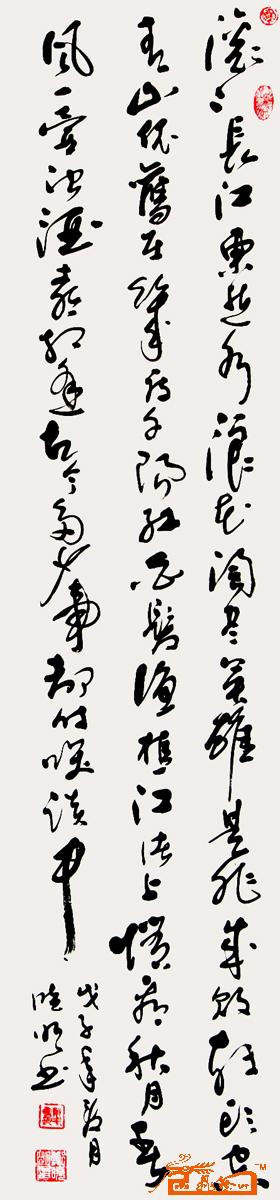 滚滚长江东逝水浪花淘尽英雄是非成败转头空
青山依旧在几度夕阳红白发渔樵江渚上惯看秋月春
风一壶浊酒喜相逢古今多少事都付笑谈中
戊子年
书